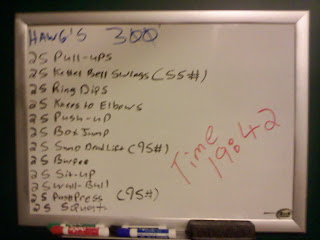 HAWG'S 300
25 Pull-ups
25 Kettel Bell Swings (55#)
25 Ring Dips
25 Knees to Elbows
25 Push-up
25 Box Jump
25 Sumo Deadlift (95#)
25 Burpee
25 Sit-up
25 Wall-Ball
25 Push Press (95#)
25 Squat
Time
19:42